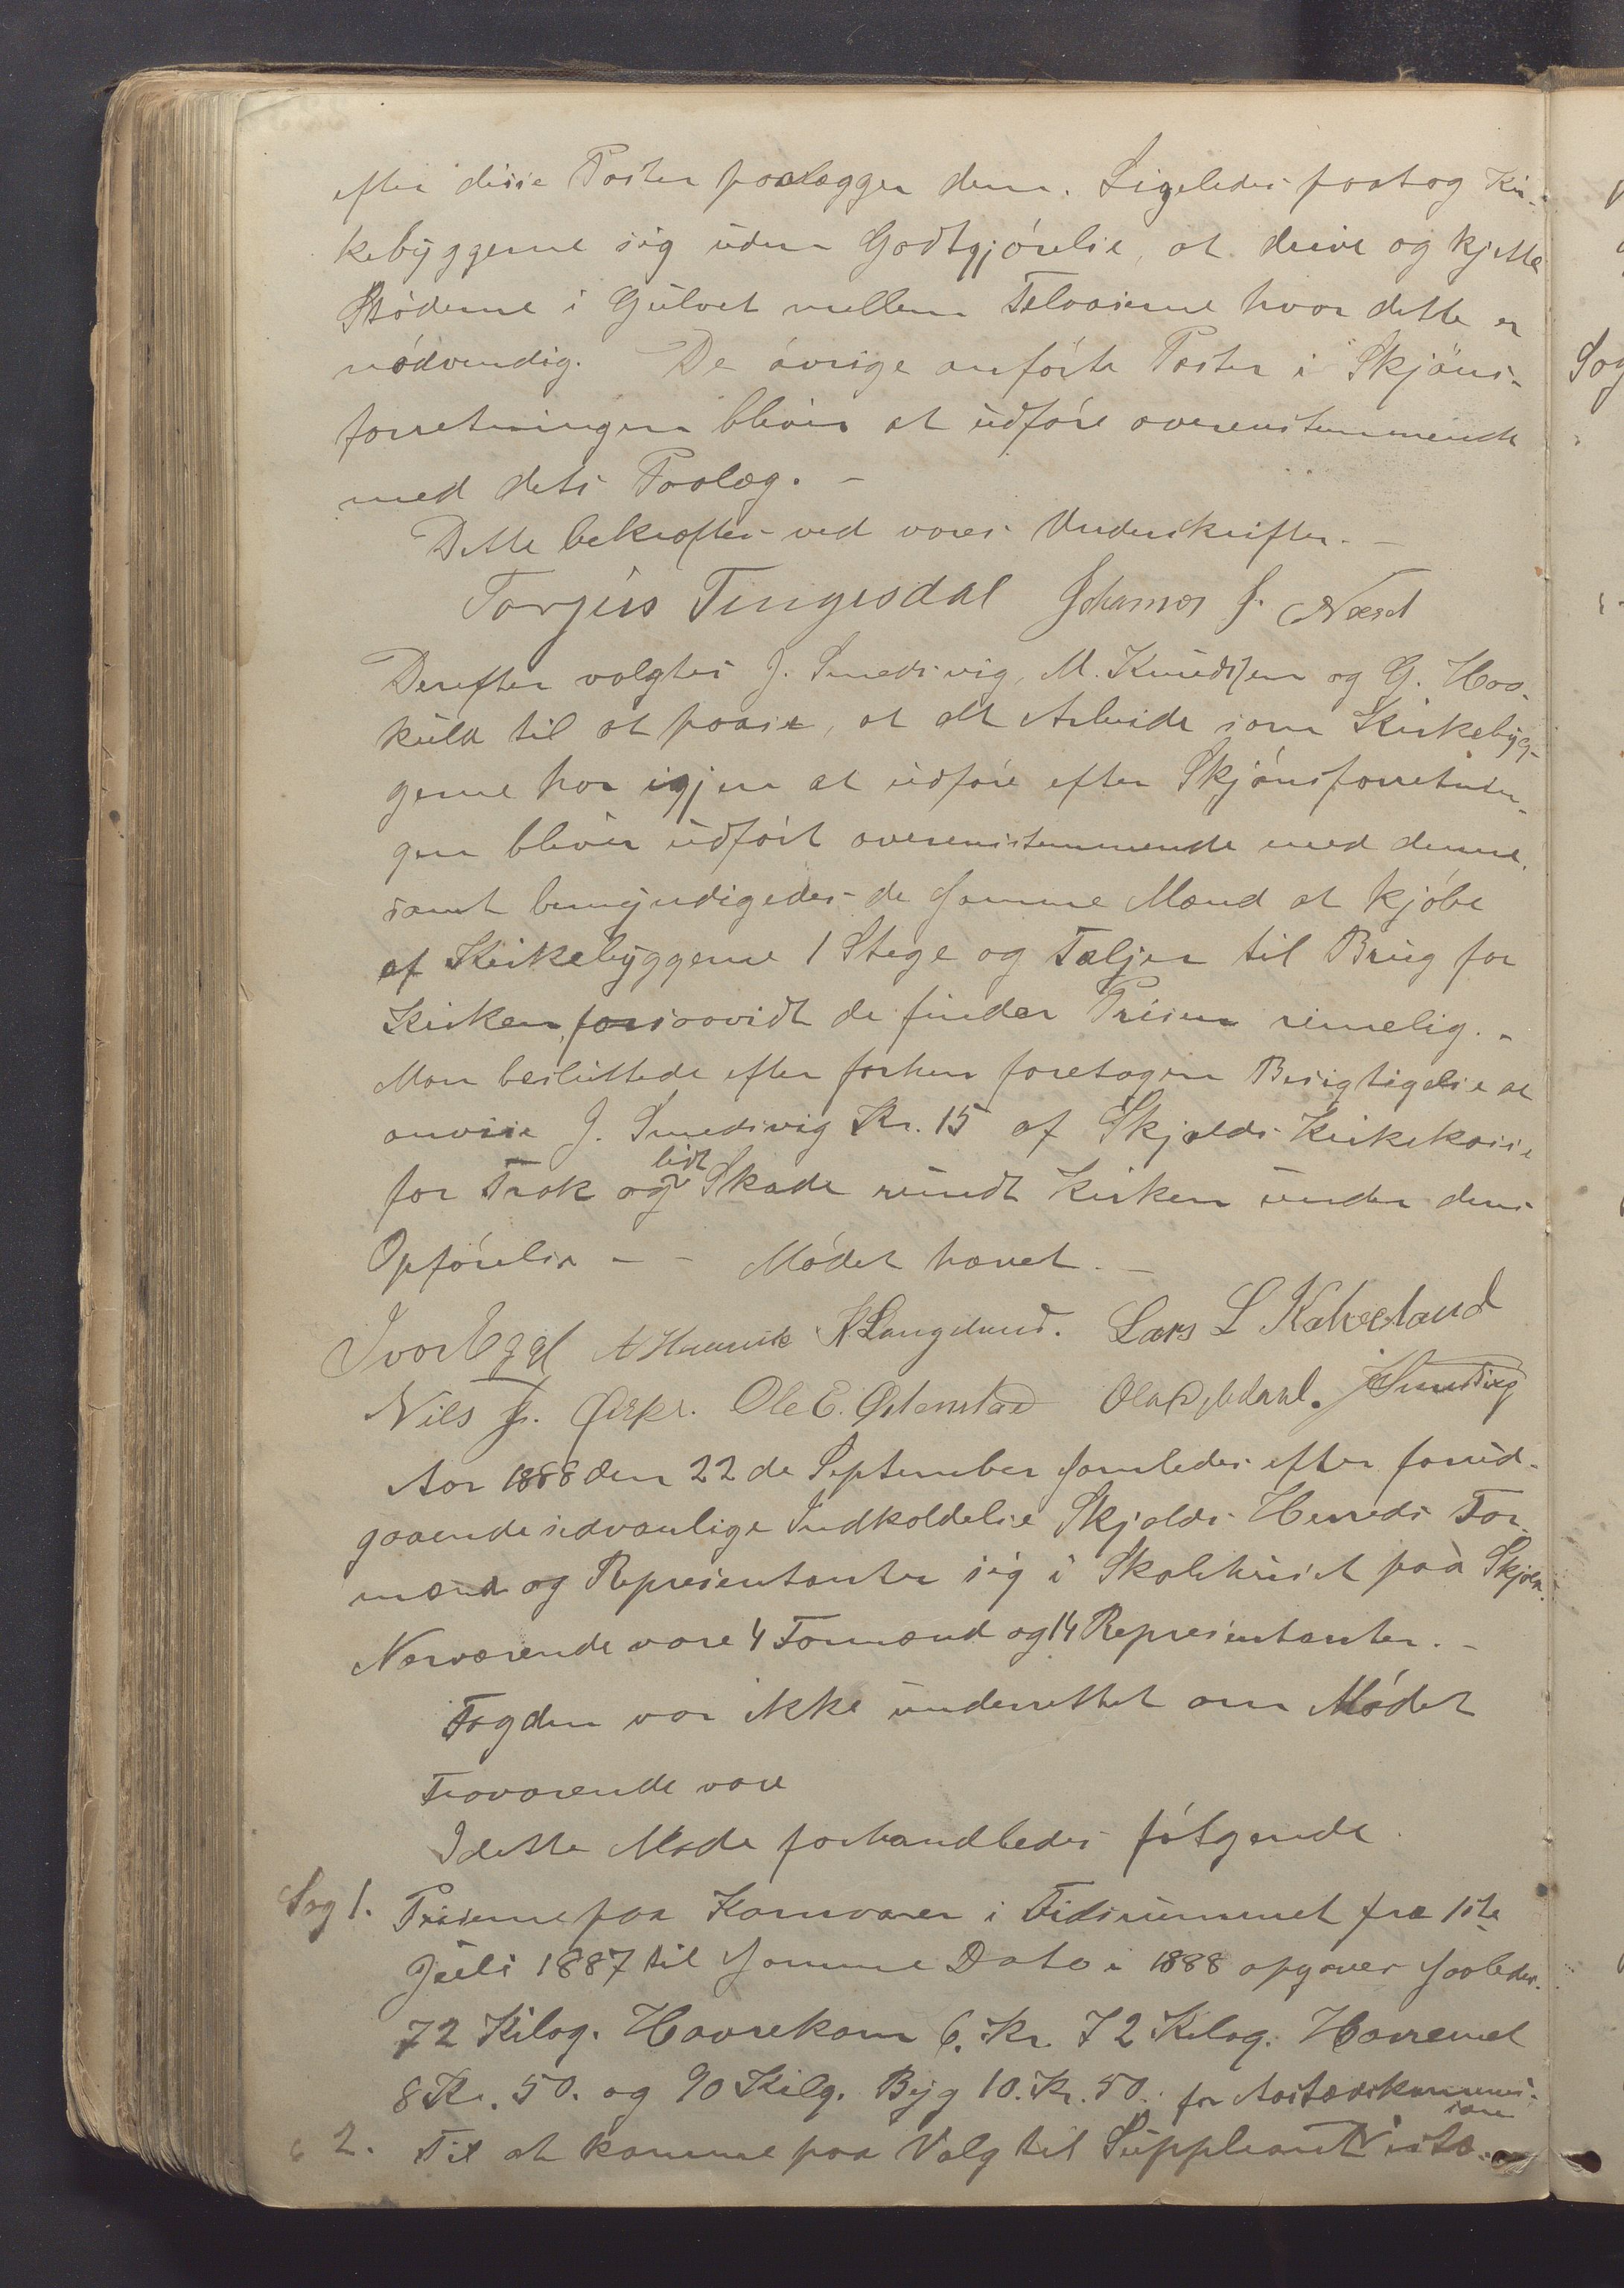 efter disse Poster paalægger dem. Ligeledes paatog Kir-
kebyggerne sig uden Godtgjørelse, at drive og kjette
Støderne i Gulvet mellem Tilvaserne hvor dette er
nødvendig. De øvrige anførte Poster i Skjøns-
forretningen bliver at udføre overenstemmende
med dets Paalæg. -
Dette bekræftes ved vores Underskrifter. -
Torjus Tingesdal Johannes J. Næset
Derefter valgtes J. Smedsvig, M. Knudssen og G. Haa-
kuld til at paase, at det Arbeide som Kirkebyg-
gerne har igjen at udføre efter Skjønsforretnin-
gen bliver udført overensstemmende med denne,
samt bemyndigedes de samme Mænd at kjøbe
af Kirkebyggerne 1 Stege og Taljer til Brug for
Kirken, forsaavidt de finder Prisen rimelig. -
Man besluttede efter forhen foretagen Besigtigelse at
anvise J. Smedsvig Kr. 15 af Skjolds Kirkekasse
for Trak og lidt Skade rundt Kirken under dens
Opførelse - - Mødet hævet. -
Ivar Eggl Langeland. Lars L Kalveland
Nils J. Ole E. Østenstad Ola JSmedsvig
Aar 1888 den 22de September samledes efter forud-
gaaende sedvanlige Indkaldelse Skjolds Herreds For-
mænd og Repræsentanter sig i Skolehuset paa Skjold.
Nærværende vare 4 Formænd og 14 Repræsentanter. -
Fogden var ikke underrettet om Mødet
Fraværende vare
I dette Møde forhandledes følgende
Sag 1. Priserne paa Kornvarer i Tidsrummet fra 1ste
Juli 1887 til samme Dato i 1888 opgaves saaledes.
72 Kilog. Havrekorn 6. Kr. 72 Kilog. Havremel
8 Kr. 50. og 90 Kilg. Byg 10. Kr. 50. for Aastædskommis-
sion
" 2. Til at komme paa Valg til Suppleant